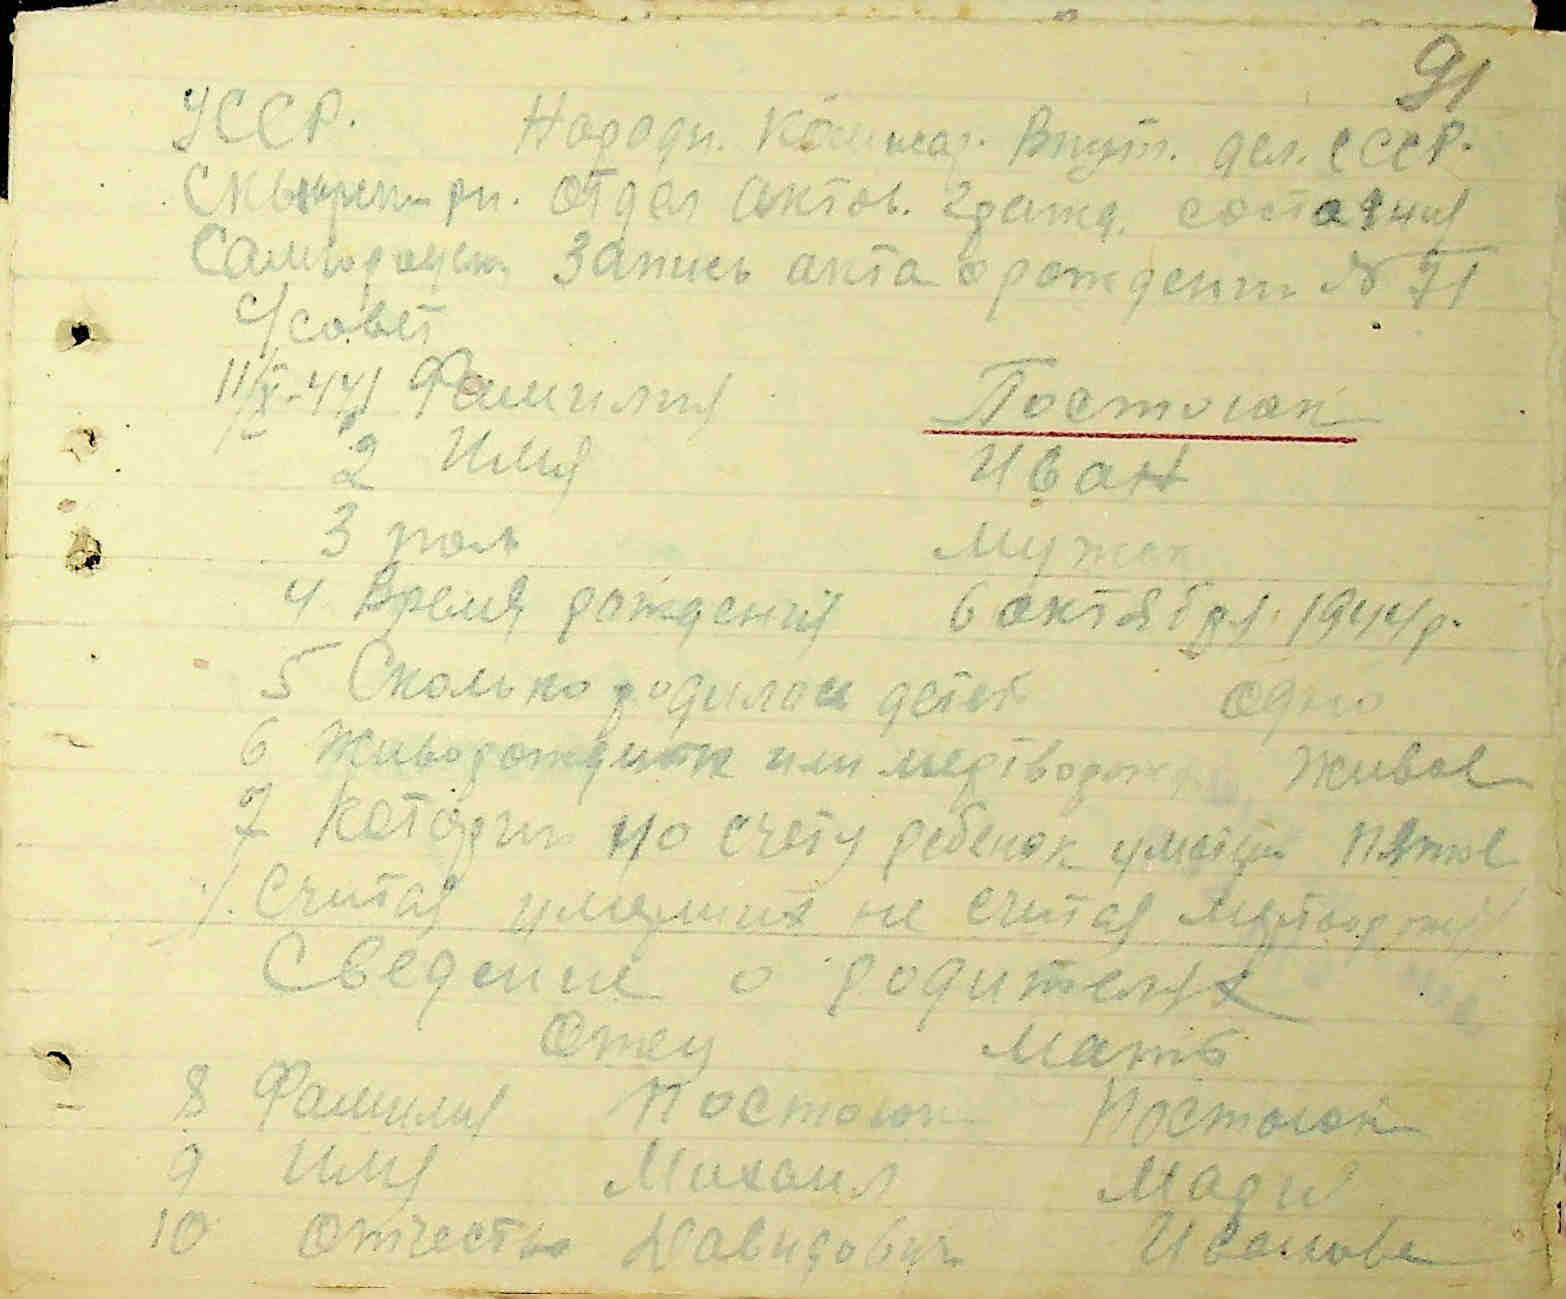 91
УССР. Народн. Комисар. Внут. дел. СССР.
рн. Отдел актов. гражд. состояния
Запись акта о рождении № 71
с/совет
11/X-44 Фамилия Постоюк
2 Имя Иван
3 пол Мужск
4 Время рождения 6 октября 1944 р.
5 Сколько родилось детей одно
6 Живорожденн или мертворож Живое
7 Который по счету ребенок у матери пятое
Считая умерших не считая мертворожд
Сведение о родителях
Отец Мать
8 Фамилия Постоюк Постоюк
9 Имя Михаил Мария
10 Отчество Давидович Иванова